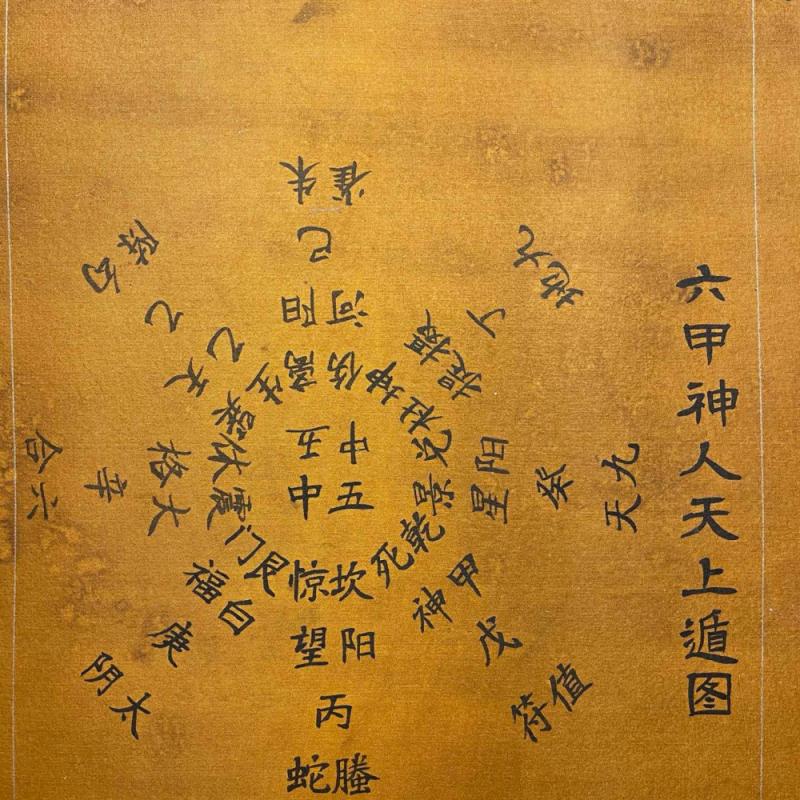 六甲神人天上遁图
雀朱
己
河阳
伤离
中五
中五
惊坎
望阳
丙
蛇螣
地九
丁
杜坤
天九
癸
星阳
景兑
符值
戊
神甲
死乾
阴太
庚
福白
门艮
合六
辛
格大
伏
乙
乙天
生